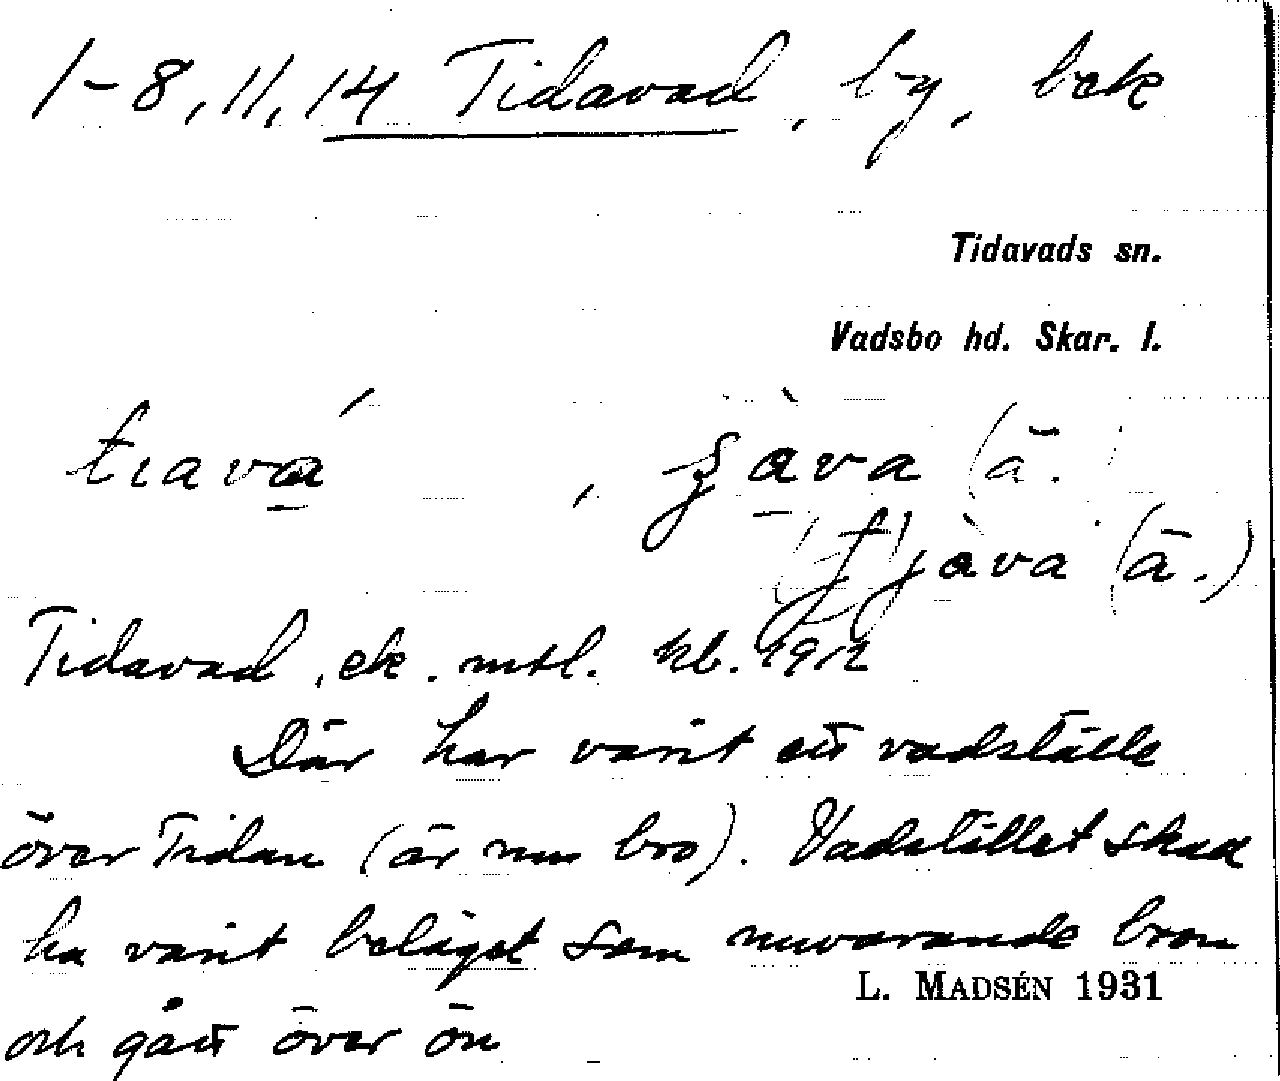 1-8, 11, 14 Tidavad, by, bek
Tidavads sn.
Vadsbo hd. Skar. l.
tıavá
jàva (ä.
Tidavad, ek. mtl. kb. 1912
Där har varit ett vadställe
över Tidan (är nu bro). Vadstället skall
ha varit beläget som nuvarande bron
och gått över ön
L. MADSÉN 1931